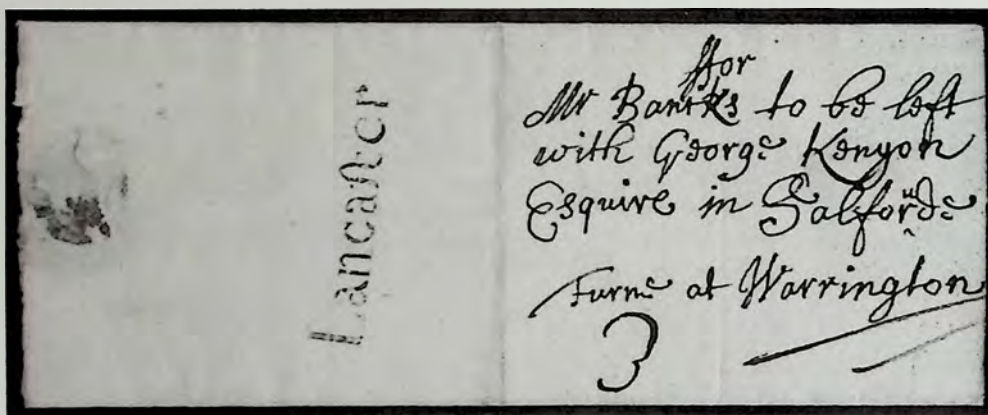 Lancaster
ffor
Mr Bancks to be left
with George Kenyon
Esquire in Salfourde
turne at Warrington
3